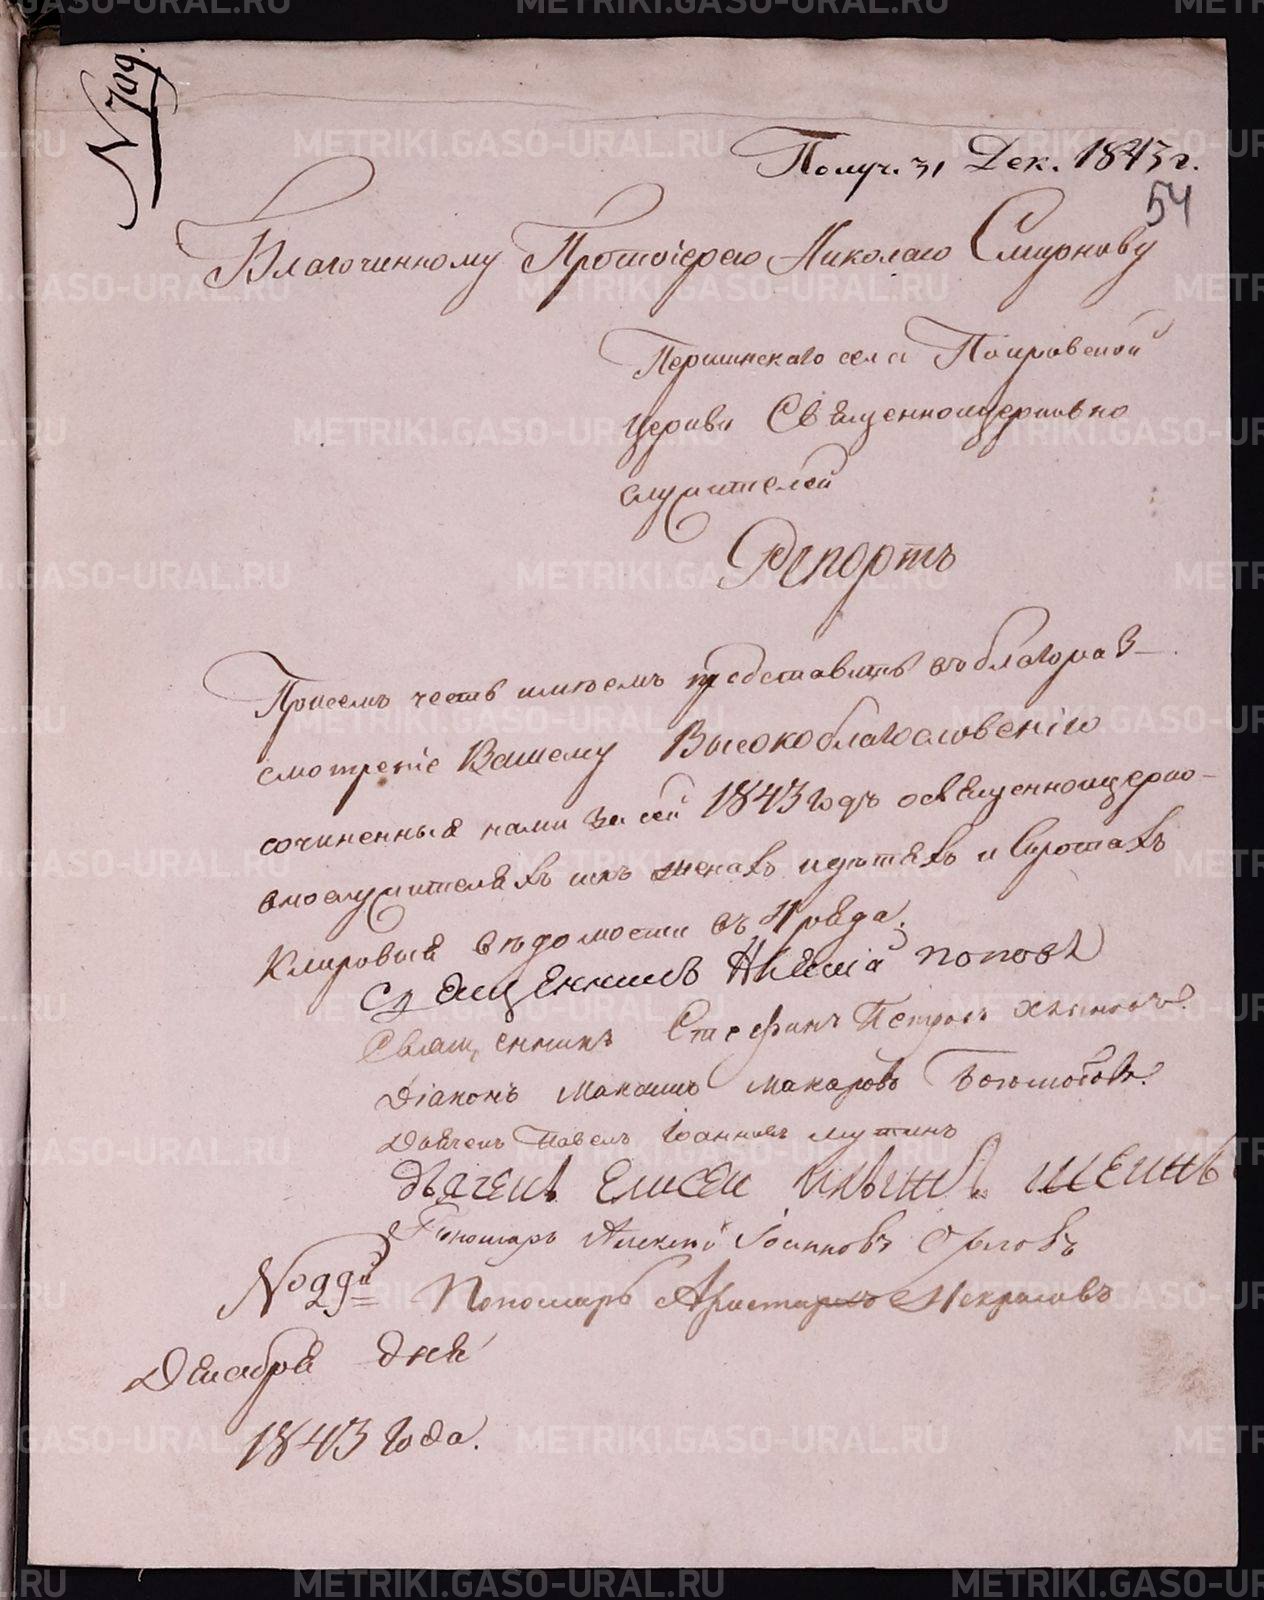 N 709.
Получ. 31 Дек. 1843 г.
54
Благочинному Протоіерею Николаю Смирнову
Першинскаго села Покровской
церкви Священноцерковно
служителей
Репортъ
Присемъ честь имѣемъ представить въ благораз-
смотреніе Вашему Высокоблагословенію
сочиненныя нами за сей 1843 годъ освященноцерко-
внослужителяхъ ихъ женахъ идѣтяхъ и Сиротахъ
Клировыя вѣдомости
Священникъ Алексій Поповъ
Священникъ Стефанъ Петровъ
Діаконъ Макаровъ
Дьячекъ Павелъ Іоанновъ
дьячекъ Елисей Шеинъ
Пономарь Алексій Іоанновъ Орловъ
№ 29й Пономарь Аристархъ Некрасовъ
Декабря дня
1843 года.
METRIKI.GASO-URAL.RU